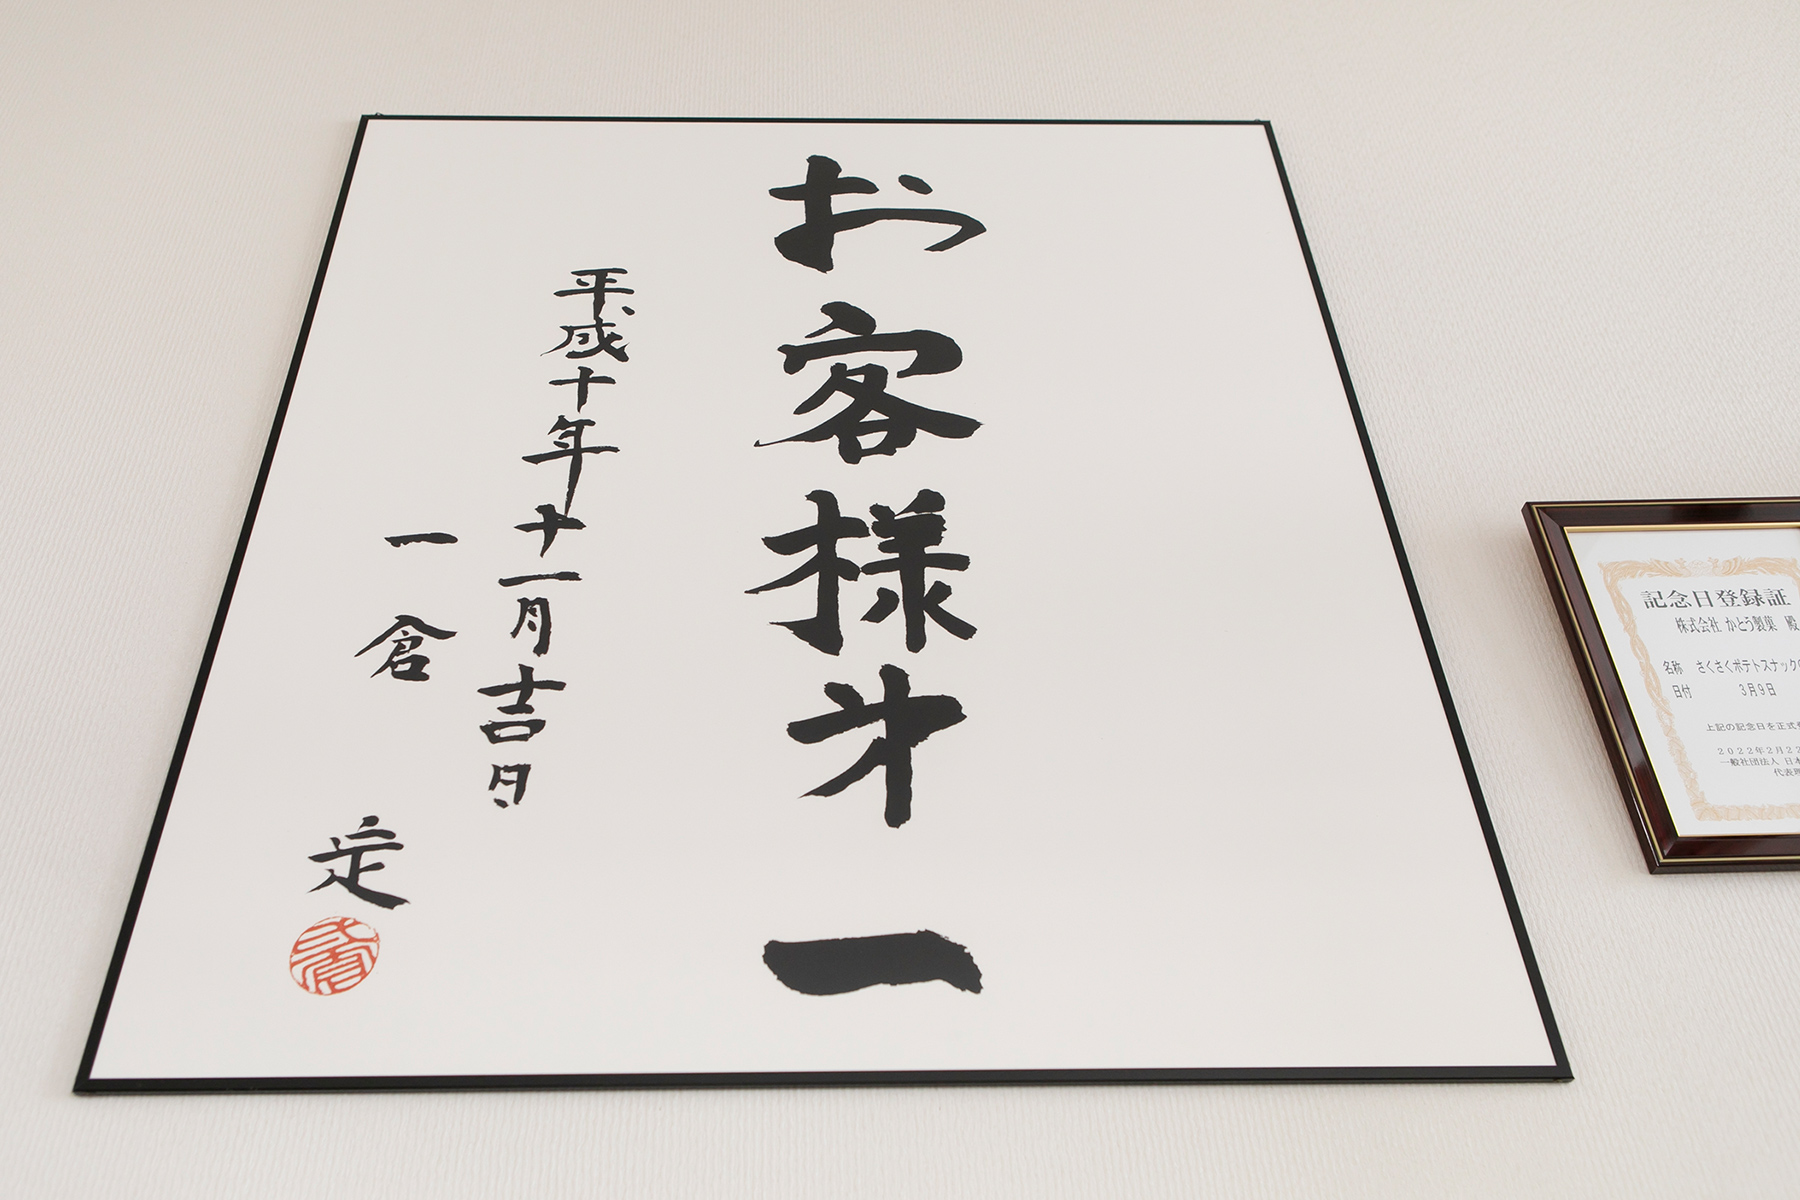 お客様才一
平成十年十一月吉日
一倉定
記念日登録証
株式会社 かとう製菓 殿
名称 さくさくポテトスナックの
日付 3月9日
上記の記念日を正式
2022年2月22
一般社団法人 日本
代表理